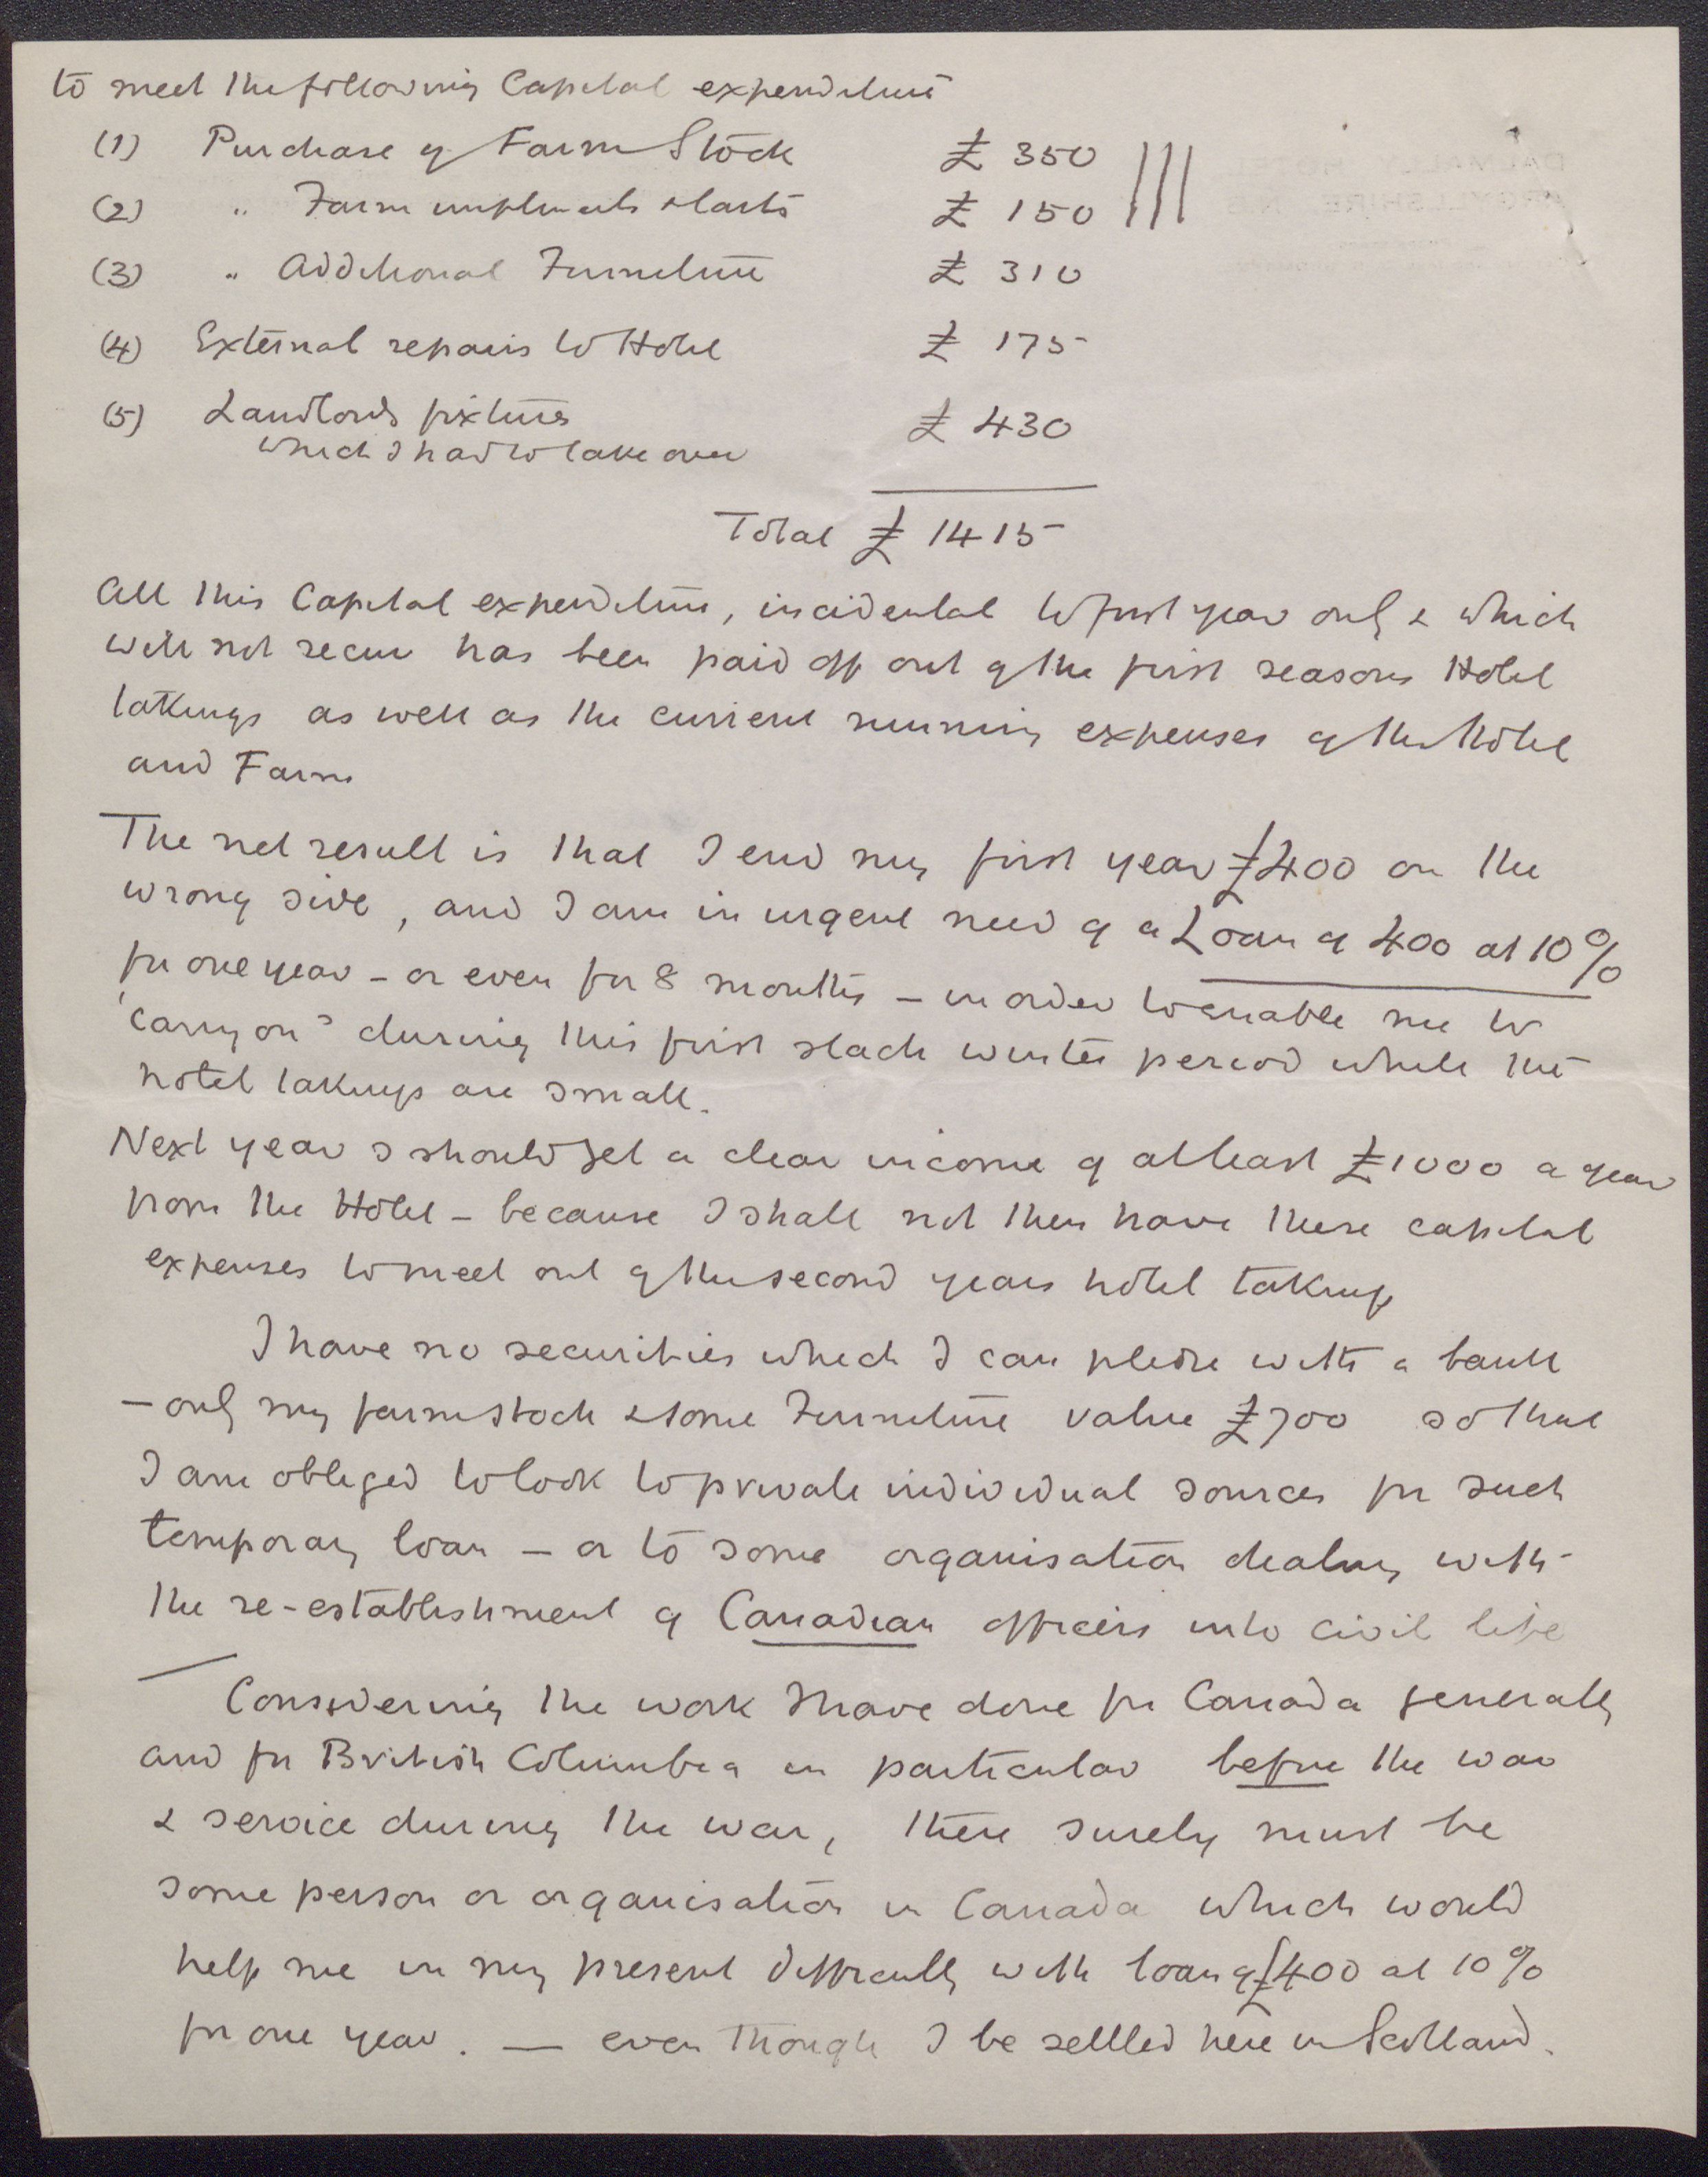 to meet the following Capital expenditure
(1) Purchase of Farm Stock £ 350
(2) " Farm implements & carts £ 150
(3) " Additional Furniture £ 310
(4) External repairs to Hotel £ 175
(5) Landlords fixtures
which I had to take over £ 430
Total £ 1415
All this Capital expenditure, incidental to first year only & which
will not recur has been paid off out of the first seasons Hotel
takings as well as the current running expenses of the Hotel
and Farm
The net result is that I end my first year £400 on the
wrong side, and I am in urgent need of a Loan of 400 at 10%
for one year - or even for 8 months - in order to enable me to
'carry on' during this first slack winter period while the
hotel takings are small.
Next year I should get a clear income of at least £1000 a year
from the Hotel - because I shall not then have these capital
expenses to meet out of the second years hotel takings
I have no securities which I can pledge with a bank
- only my farm stock & some Furniture value £700 so that
I am obliged to look to private individual sources for such
temporary loan - or to some organisation dealing with
the re-establishment of Canadian officers into civil life
Considering the work I have done for Canada generally
and for British Columbia in particular before the war
& service during the war, there surely must be
some person or organisation in Canada which would
help me in my present difficulty with loan of £400 at 10%
for one year. — even though I be settled here in Scotland.